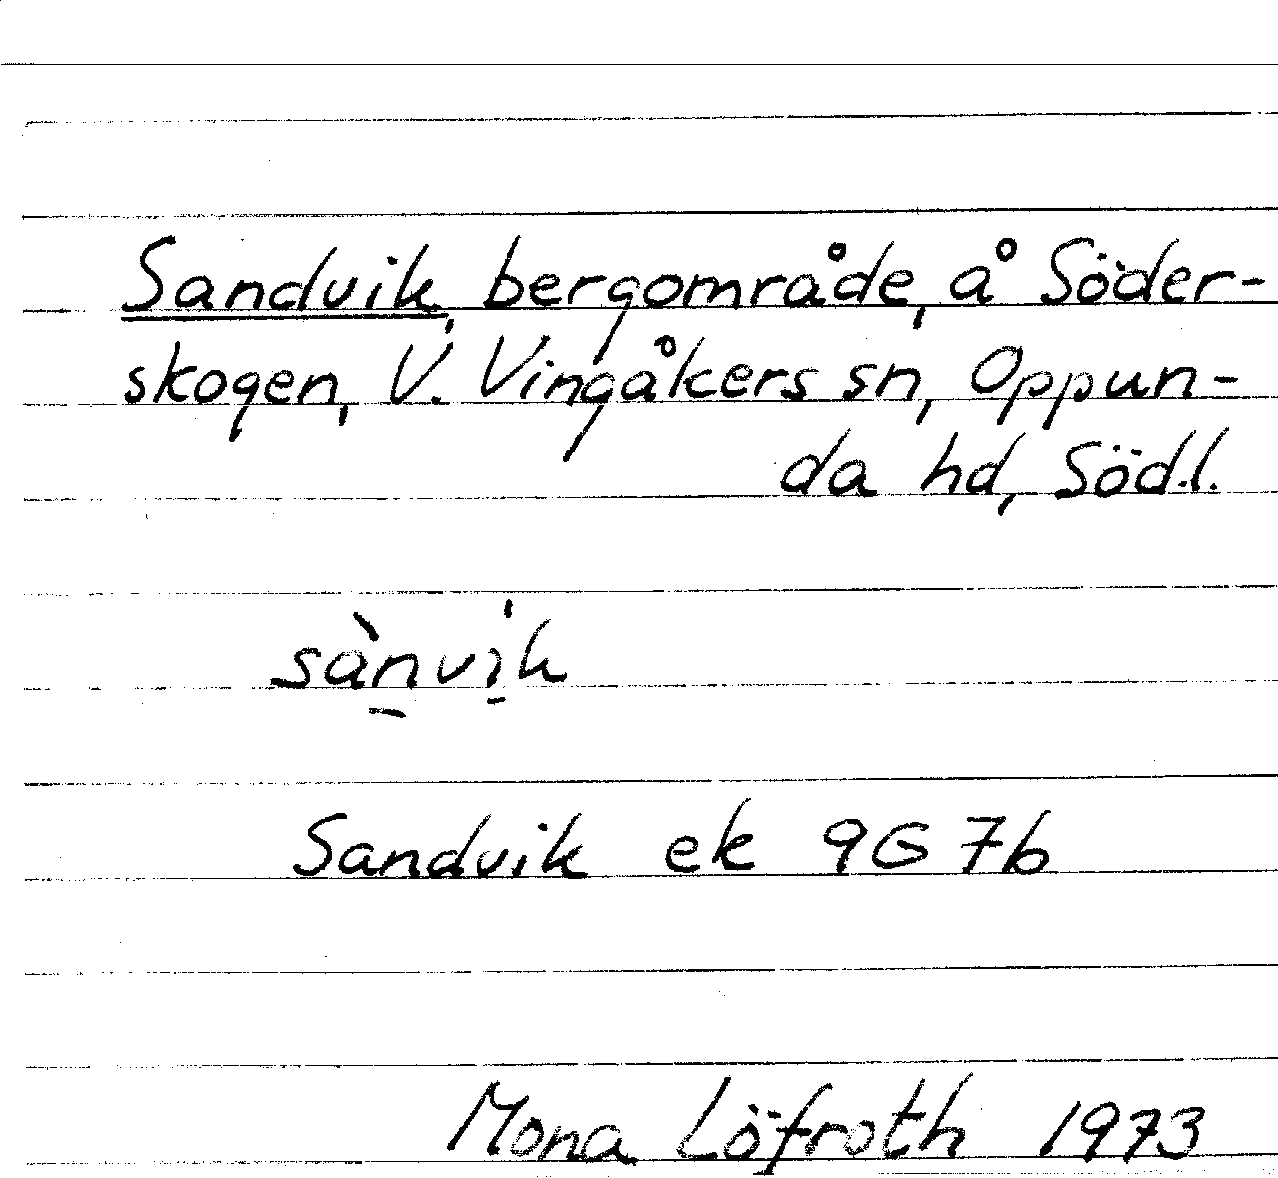 Sandvik, bergområde, å Söder-
skogen, V. Vingåkers sn, Oppun-
da hd, Södl.
sàn̲vi̲k
Sandvik ek 9G 7b
Mona Löfroth 1973